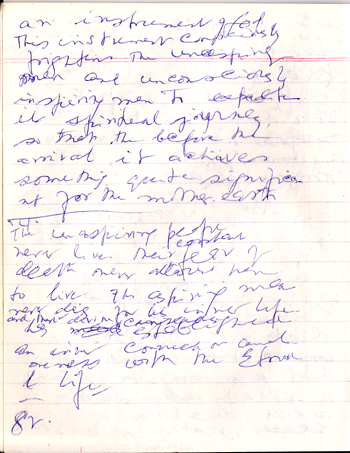 an instrument of God.
This instrument consciously
frightens the unaspiring
men and unconsciously
inspiring men to expedite
it spiritual journey,
so that the before the
arrival it achieves
something quite significa
nt for the mother earth
The unaspiring people
never live. Their constant fear of
death never allows them
to live. The aspiring men
never die, for the inner life
and their divine
has established
an inner connection and
oneness with the Eternal
Life
82.